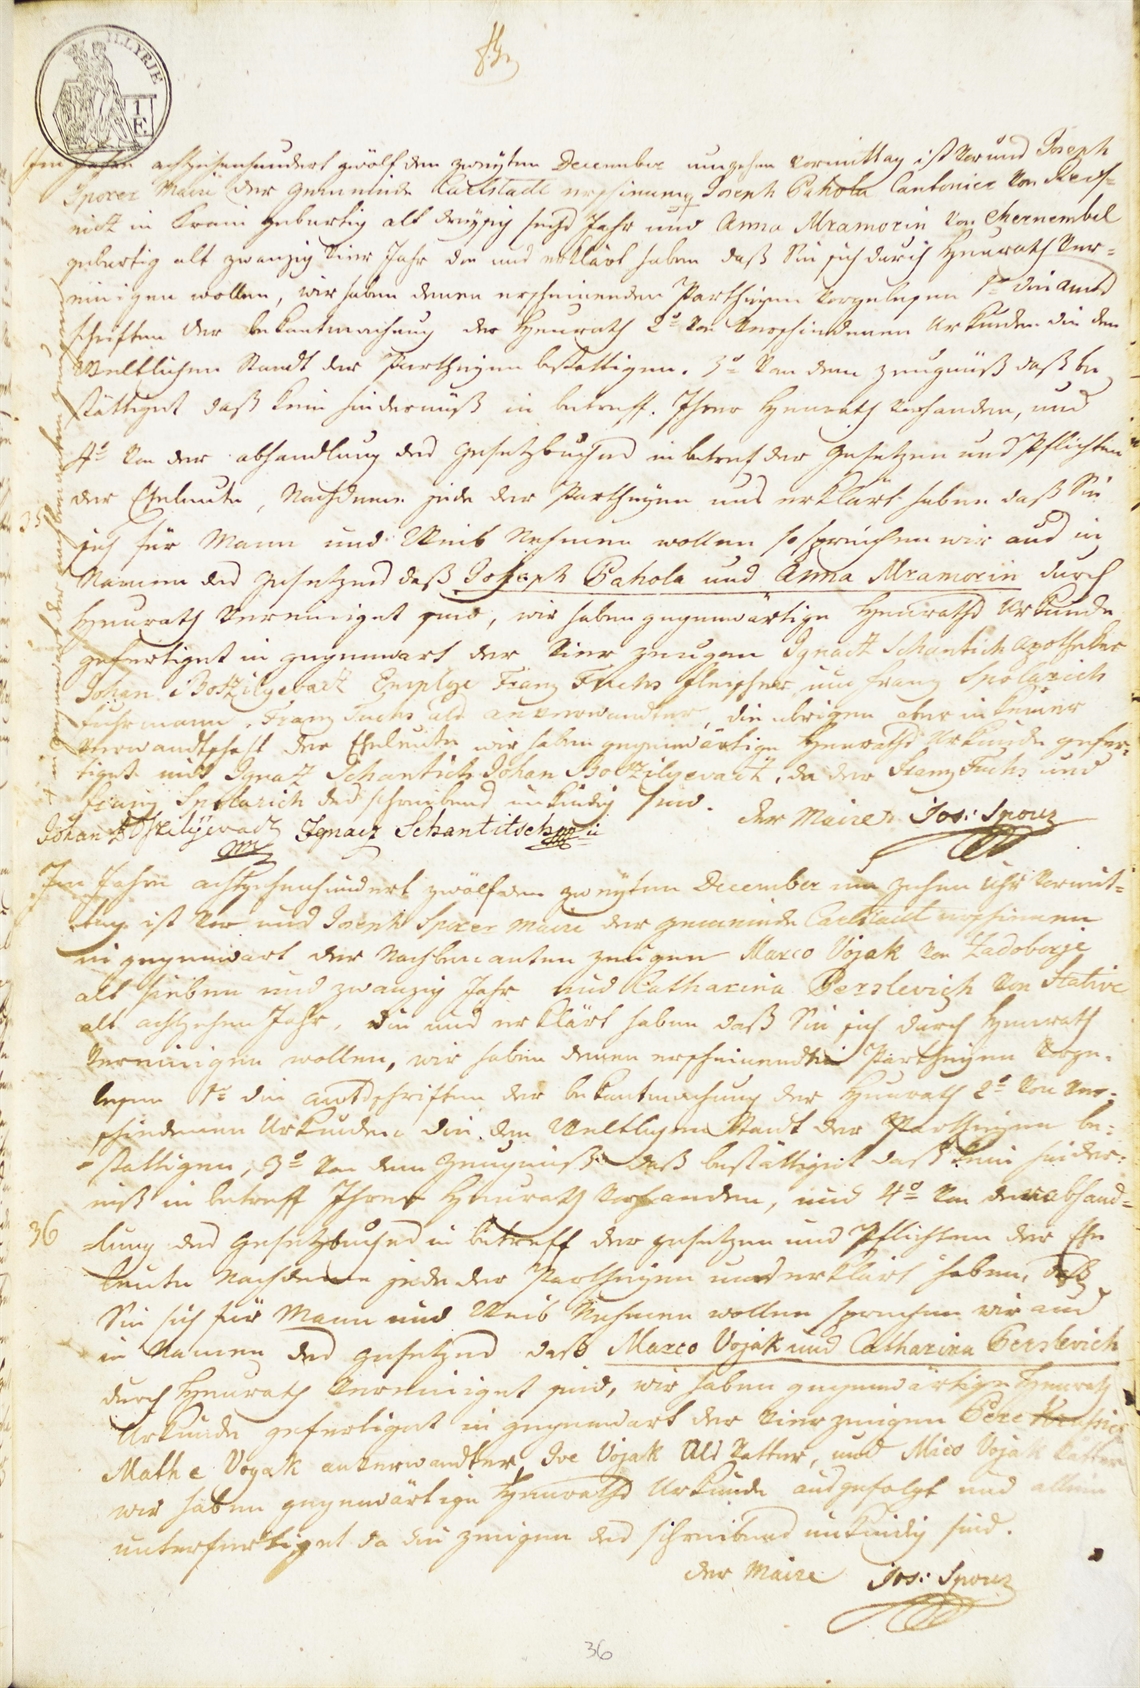 ILLYRJE
1 F.
Im Jahre achtzehenhundert zwölf den zweyten December um zehen Vormittag ist vor uns Joseph
Sporer Maire der Gemeinde Carlstadt erschienen Joseph Pahola Cantonier von Reif-
nitz in Krain gebürtig alt dreyssig sechs Jahr und Anna Mramorin von Chernembel
gebürtig alt zwanzig vier Jahr die uns erklärt haben daß Sie sich durch Heurath ver-
einigen wollen, wir haben denen erscheinenden Partheyen vorgelesen 1o die Amts
schriften der bekantmachung der Heurath 2o von verschiedenen Urkunden die den
Weltlichen Standt der Partheyen bestättigen. 3o von dem Zeugnüß daß be
stättiget daß kein Hindernüß in betreff Ihrer Heurath vorhanden, und
4o von der abhandlung des Gesetzbuches in betref der Gesetzen und Pflichten
der Eheleute, Nachdeme jede der Partheyen uns erklärt haben daß Sie
35
sich für Mann und Weib Nehmen wollen so sprechen wir aus in
Namen des Gesetzes daß Joseph Pahola und Anna Mramorin durch
Heurath vereiniget sind, wir haben gegenwärtige Heuraths Urkunde
gefertiget in gegenwart der vier Zeugen Ignatz Schantich Apotheker
Johan Bottzilyevacz Franz Fuchs fleischer und Franz Spolarich
fuhrmann, Franz Fuchs als anverwandter, die übrigen aber in keiner
verwandtschaft der Eheleute wir haben gegenwärtige Heuraths Urkunde gefer-
tiget mit Ignatz Schantich Johan Bottzilyevacz, da der Franz Fuchs und
Franz Spolarich des schreibens unkündig sind.
der Maire Jos: Sporer
+ in gegenwart der nachbenannten zeugen
Johan Ignacz Schantitsch
Im Jahre achtzehenhundert zwölf den zweyten December um zehen Uhr vormit-
tag ist vor uns Joseph Sporer Maire der Gemeinde Carlstadt erschienen
in gegenwart der Nachbenanten zeugen Marco Vojak von Zadoborje
alt sieben und zwanzig Jahr und Catharina Perslevich von Stative
alt achtzehen Jahr, die uns erklärt haben daß Sie sich durch Heurath
vereinigen wollen, wir haben denen erscheinendten Partheyen vorge-
lesen 1o die Amtsschriften der bekantmachung der Heurath 2o von ver-
schiedenen Urkunden die den Weltlichen Stant der Partheyen be-
stattigen, 3o von dem Zeugnuß daß bestättiget daß kein hinder-
nuß in betreff Ihrer Heurath vorhanden, und 4o von der abhand-
36
lung des Gesetzbuches in betreff der gesetzen und Pflichten der Ehe
leute Nachdeme jede der Partheyen uns erklärt haben, daß
Sie sich für Mann und Weib Nehmen wollen sprechen wir aus
in Namen des Gesetzes daß Marco Vojak und Catharina Perslevich
durch Heurath vereiniget sind, wir haben gegenwärtige Heurath
Urkunde gefertiget in gegenwart der vier zeugen Pere
Mathe Voyak anverwandter, Ive Vojak als Vatter, und Mico Vojak Vatter
wir haben gegenwärtige Heuraths Urkunde ausgefolgt und allein
unterfertiget da die zeugen des schreibens unkündig sind.
der Maire Jos: Sporer
36